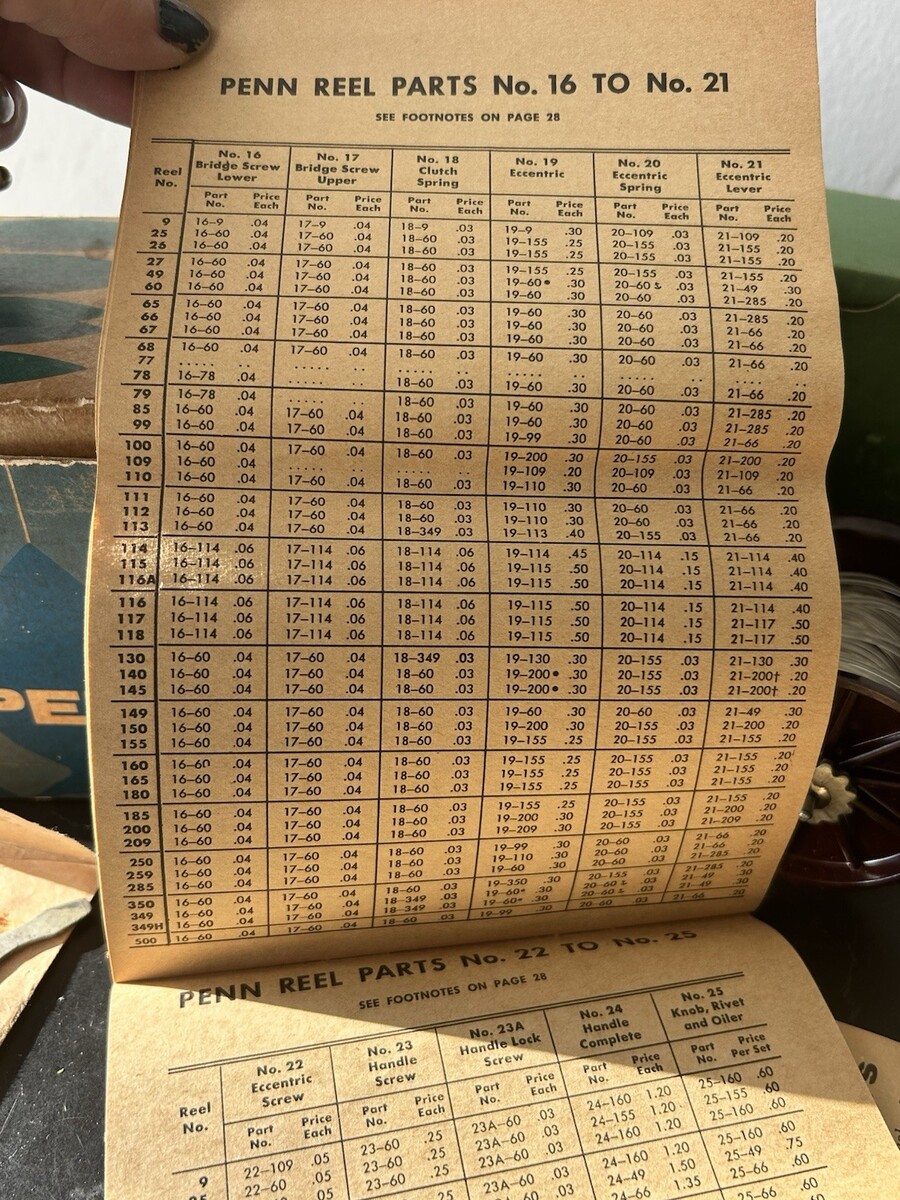 PENN REEL PARTS No. 16 TO No. 21
SEE FOOTNOTES ON PAGE 28
Reel No. No. 16 Bridge Screw Lower No. 17 Bridge Screw Upper No. 18 Clutch Spring No. 19 Eccentric No. 20 Eccentric Spring No. 21 Eccentric Lever
Part No. Price Each Part No. Price Each Part No. Price Each Part No. Price Each Part No. Price Each Part No. Price Each
9 16–9 .04 17–9 .04 18–9 .03 19–9 .30 20–109 .03 21–109 .20
25 16–60 .04 17–60 .04 18–60 .03 19–155 .25 20–155 .03 21–155 .20
26 16–60 .04 17–60 .04 18–60 .03 19–155 .25 20–155 .03 21–155 .20
27 16–60 .04 17–60 .04 18–60 .03 19–155 .25 20–155 .03 21–155 .20
49 16–60 .04 17–60 .04 18–60 .03 19–60• .30 20–60 .03 21–49 .30
60 16–60 .04 17–60 .04 18–60 .03 19–60 .30 20–60 .03 21–285 .20
65 16–60 .04 17–60 .04 18–60 .03 19–60 .30 20–60 .03 21–285 .20
66 16–60 .04 17–60 .04 18–60 .03 19–60 .30 20–60 .03 21–66 .20
67 16–60 .04 17–60 .04 18–60 .03 19–60 .30 20–60 .03 21–66 .20
68 16–60 .04 17–60 .04 18–60 .03 19–60 .30 20–60 .03 21–66 .20
77 .... .. ..... .. ..... .. ..... .. ..... .. ..... ..
78 16–78 .04 ..... .. 18–60 .03 19–60 .30 20–60 .03 21–66 .20
79 16–78 .04 ..... .. 18–60 .03 19–60 .30 20–60 .03 21–285 .20
85 16–60 .04 17–60 .04 18–60 .03 19–60 .30 20–60 .03 21–285 .20
99 16–60 .04 17–60 .04 18–60 .03 19–99 .30 20–60 .03 21–66 .20
100 16–60 .04 17–60 .04 18–60 .03 19–200 .30 20–155 .03 21–200 .20
109 16–60 .04 ..... .. ..... .. 19–109 .20 20–109 .03 21–109 .20
110 16–60 .04 17–60 .04 18–60 .03 19–110 .30 20–60 .03 21–66 .20
111 16–60 .04 17–60 .04 18–60 .03 19–110 .30 20–60 .03 21–66 .20
112 16–60 .04 17–60 .04 18–60 .03 19–110 .30 20–60 .03 21–66 .20
113 16–60 .04 17–60 .04 18–349 .03 19–113 .40 20–155 .03 21–66 .20
114 16–114 .06 17–114 .06 18–114 .06 19–114 .45 20–114 .15 21–114 .40
115 16–114 .06 17–114 .06 18–114 .06 19–115 .50 20–114 .15 21–114 .40
116A 16–114 .06 17–114 .06 18–114 .06 19–115 .50 20–114 .15 21–114 .40
116 16–114 .06 17–114 .06 18–114 .06 19–115 .50 20–114 .15 21–114 .40
117 16–114 .06 17–114 .06 18–114 .06 19–115 .50 20–114 .15 21–117 .50
118 16–114 .06 17–114 .06 18–114 .06 19–115 .50 20–114 .15 21–117 .50
130 16–60 .04 17–60 .04 18–349 .03 19–130 .30 20–155 .03 21–130 .30
140 16–60 .04 17–60 .04 18–60 .03 19–200• .30 20–155 .03 21–200† .20
145 16–60 .04 17–60 .04 18–60 .03 19–200• .30 20–155 .03 21–200† .20
149 16–60 .04 17–60 .04 18–60 .03 19–60 .30 20–60 .03 21–49 .30
150 16–60 .04 17–60 .04 18–60 .03 19–200 .30 20–155 .03 21–200 .20
155 16–60 .04 17–60 .04 18–60 .03 19–155 .25 20–155 .03 21–155 .20
160 16–60 .04 17–60 .04 18–60 .03 19–155 .25 20–155 .03 21–155 .20
165 16–60 .04 17–60 .04 18–60 .03 19–155 .25 20–155 .03 21–155 .20
180 16–60 .04 17–60 .04 18–60 .03 19–155 .25 20–155 .03 21–155 .20
185 16–60 .04 17–60 .04 18–60 .03 19–155 .25 20–155 .03 21–155 .20
200 16–60 .04 17–60 .04 18–60 .03 19–200 .30 20–155 .03 21–200 .20
209 16–60 .04 17–60 .04 18–60 .03 19–209 .30 20–155 .03 21–209 .20
250 16–60 .04 17–60 .04 18–60 .03 19–99 .30 20–60 .03 21–66 .20
259 16–60 .04 17–60 .04 18–60 .03 19–110 .30 20–60 .03 21–66 .20
285 16–60 .04 17–60 .04 18–60 .03 19–60 .30 20–60 .03 21–285 .20
350 16–60 .04 17–60 .04 18–60 .03 19–350 .30 20–155 .03 21–285 .20
349 16–60 .04 17–60 .04 18–349 .03 19–60• .30 20–60 .03 21–49 .30
349H 16–60 .04 17–60 .04 18–349 .03 19–60• .30 20–60 .03 21–49 .30
500 16–60 .04 17–60 .04 18–60 .03 19–99 .30 20–60 .03 21–66 .20
PE
PENN REEL PARTS No. 22 TO No. 25
SEE FOOTNOTES ON PAGE 28
Reel No. No. 22 Eccentric Screw No. 23 Handle Screw No. 23A Handle Lock Screw No. 24 Handle Complete No. 25 Knob, Rivet and Oiler
Part No. Price Each Part No. Price Each Part No. Price Each Part No. Price Each Part No. Price Per Set
9 22–109 .05 23–60 .25 23A–60 .03 24–160 1.20 25–160 .60
22–60 .05 23–60 .25 23A–60 .03 24–155 1.20 25–155 .60
.05 23–60 .25 23A–60 .03 24–160 1.20 25–160 .60
.25 23A–60 .03 24–160 1.20 25–160 .60
24–49 1.50 25–49 .75
24–66 1.35 25–66 .60
25–66 .60